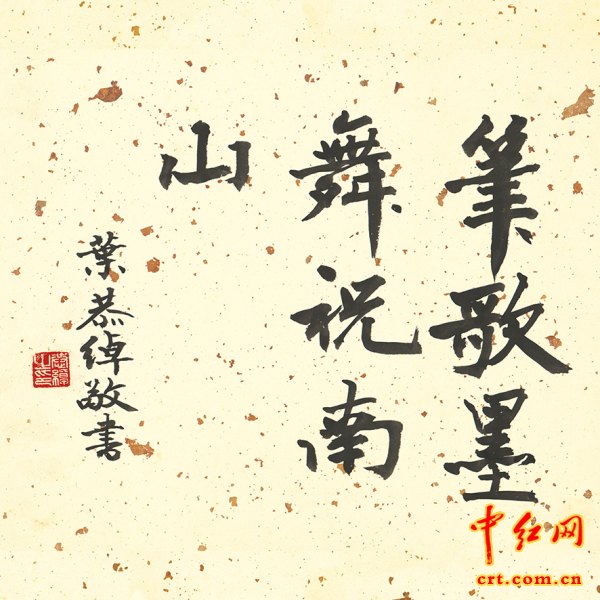 筆歌墨
舞祝南
山
葉恭绰敬書
中红网
crt.com.cn